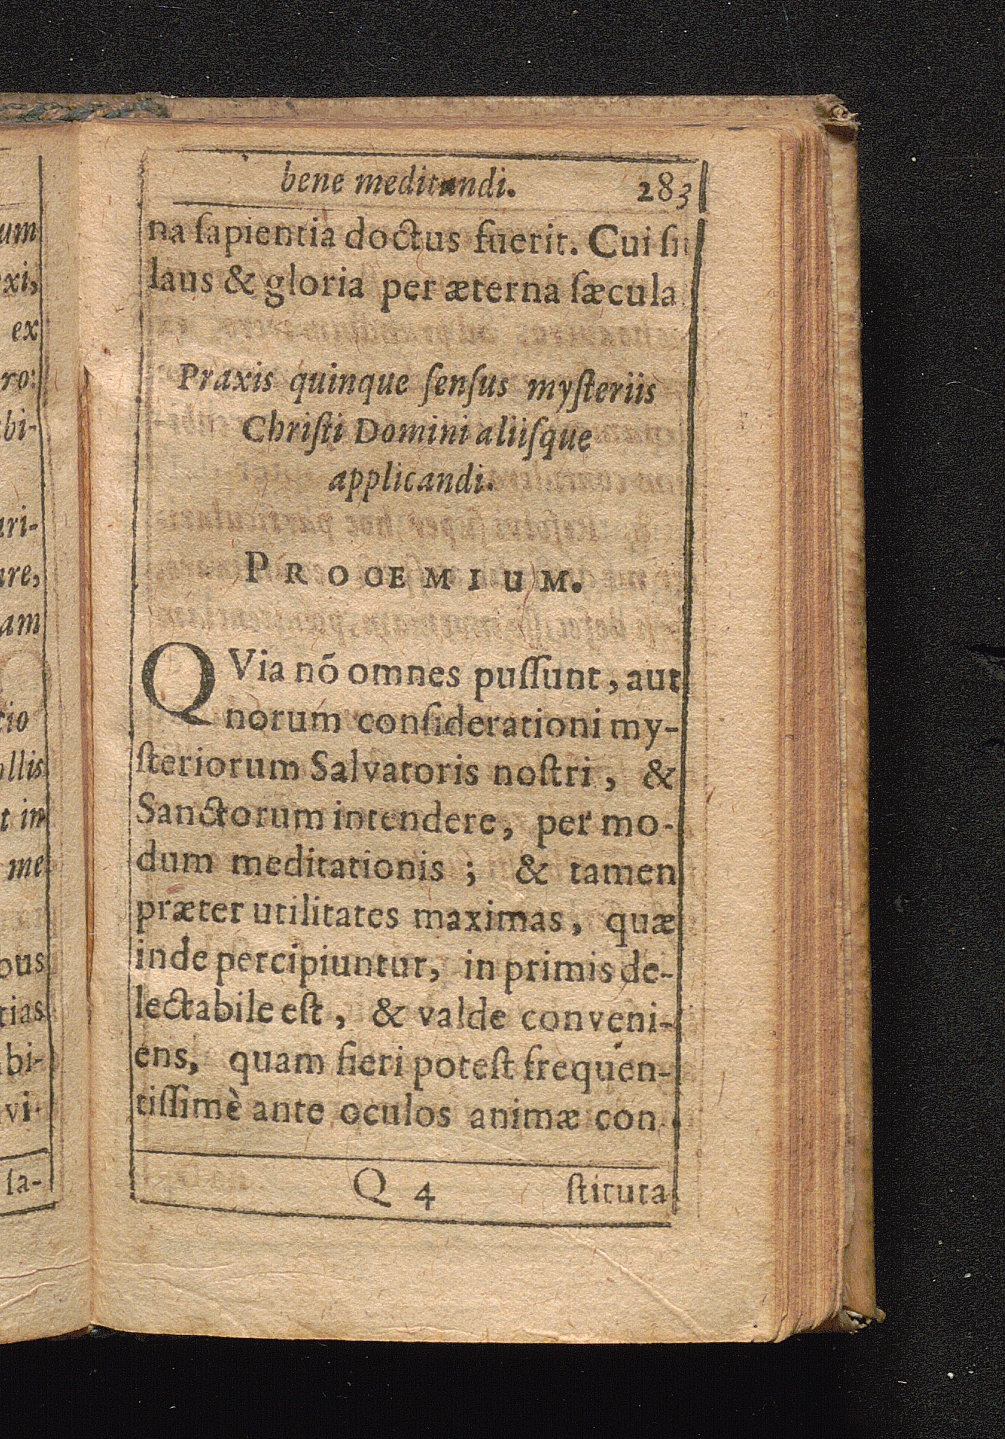 bene meditandi. 283
na ſapientia doctus fuerit. Cui ſit
laus & gloria per æterna ſæcula
Praxis quinque ſenſus myſteriis
Chriſti Domini aliiſque
applicandi.
PROOEMIUM.
QVia nõ omnes puſſunt, aut
norum conſiderationi my-
ſteriorum Salvatoris noſtri, &
Sanctorum intendere, per mo-
dum meditationis ; & tamen
præter utilitates maximas, quæ
inde percipiuntur, in primis de-
lectabile eſt, & valde conveni-
ens, quam fieri poteſt frequen-
tiſſimè ante oculos animæ con-
Q 4 ſtituta